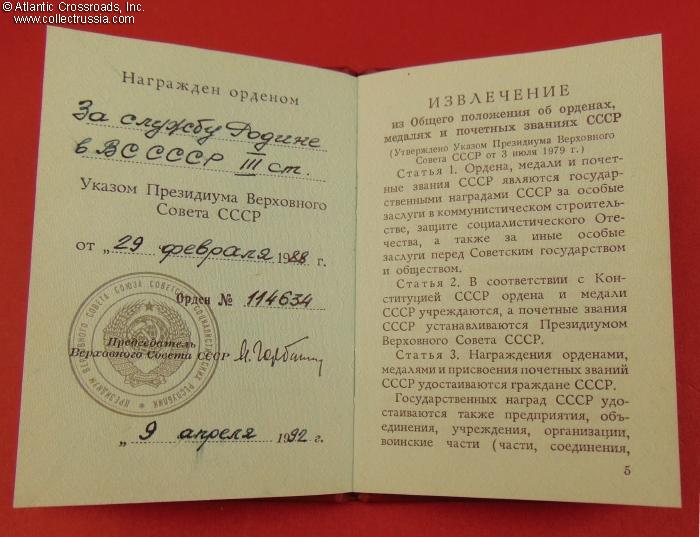 © Atlantic Crossroads, Inc.
www.collectrussia.com
Награжден орденом
За службу Родине
в ВС СССР III ст.
Указом Президиума Верховного
Совета СССР
от „29 февраля 1988 г.
Орден № 114634
ПРЕЗИДИУМ ВЕРХОВНОГО СОВЕТА СОЮЗА СОВЕТСКИХ СОЦИАЛИСТИЧЕСКИХ РЕСПУБЛИК
Председатель
Верховного Совета СССР М. Горбачев
„9 апреля 1992 г.
ИЗВЛЕЧЕНИЕ
из Общего положения об орденах,
медалях и почетных званиях СССР
(Утверждено Указом Президиума Верховного
Совета СССР от 3 июля 1979 г.)
Статья 1. Ордена, медали и почет-
ные звания СССР являются государ-
ственными наградами СССР за особые
заслуги в коммунистическом строитель-
стве, защите социалистического Оте-
чества, а также за иные особые
заслуги перед Советским государством
и обществом.
Статья 2. В соответствии с Кон-
ституцией СССР ордена и медали
СССР учреждаются, а почетные звания
СССР устанавливаются Президиумом
Верховного Совета СССР.
Статья 3. Награждения орденами,
медалями и присвоения почетных званий
СССР удостаиваются граждане СССР.
Государственных наград СССР удо-
стаиваются также предприятия, объ-
единения, учреждения, организации,
воинские части (части, соединения,
5